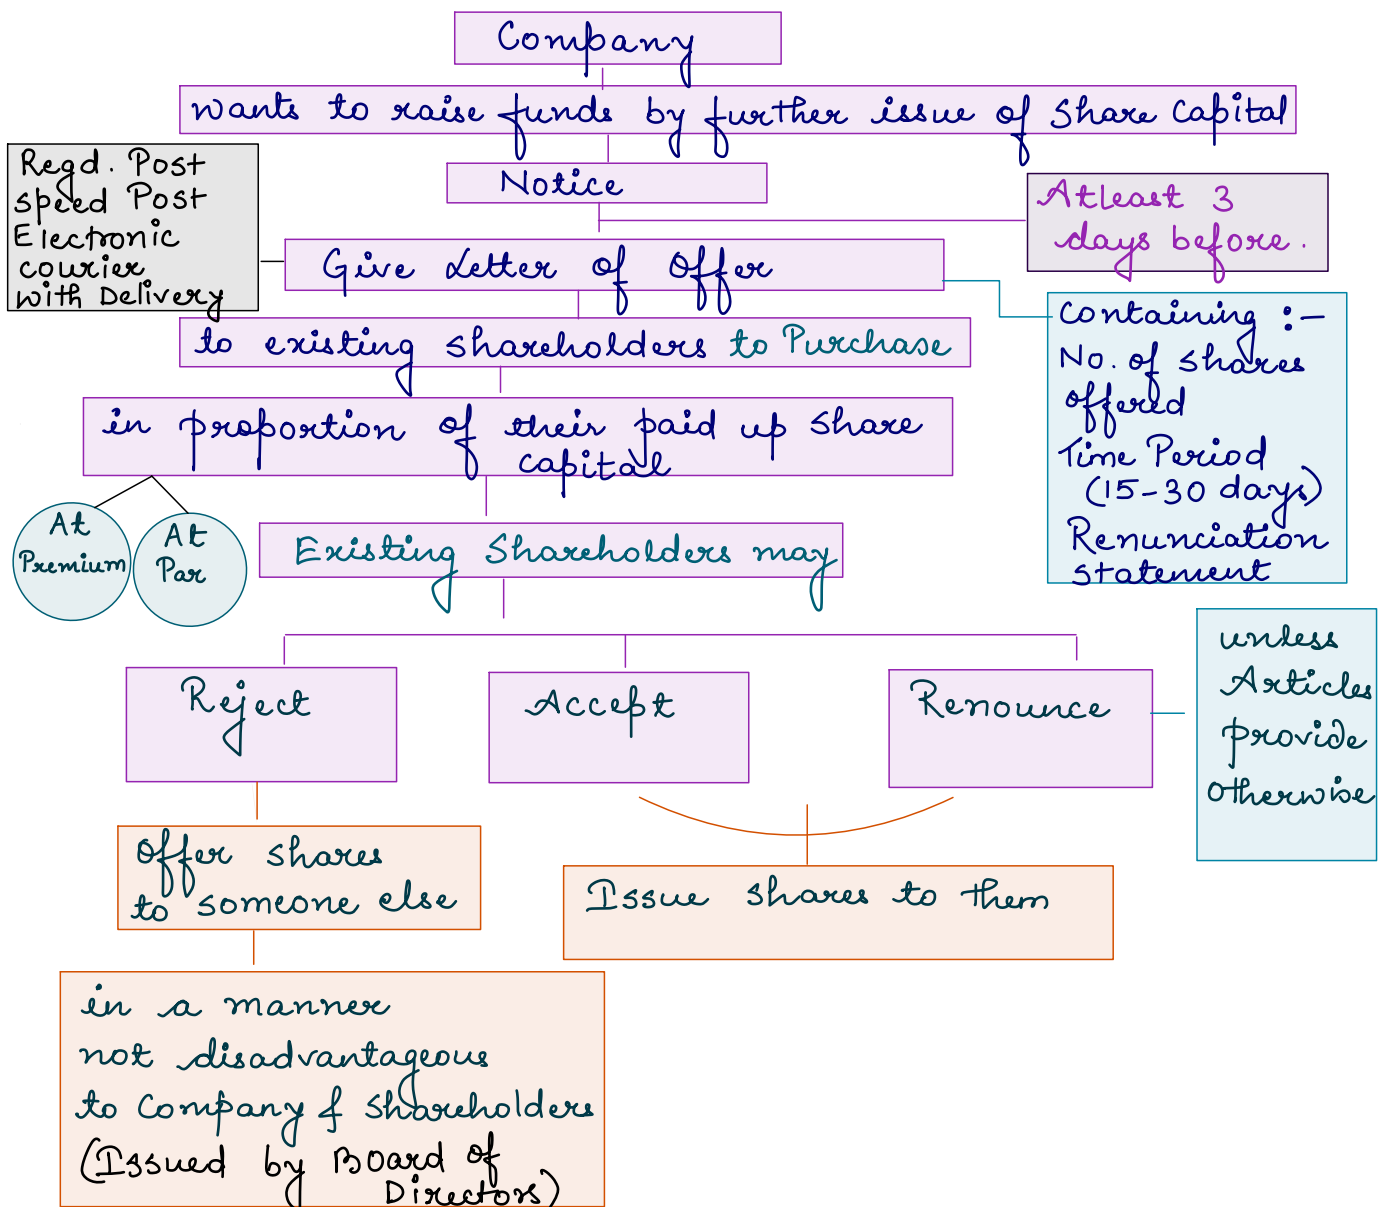 Company
wants to raise funds by further issue of Share Capital
Regd. Post
speed Post
Electronic
courier
with Delivery
Notice
Atleast 3
days before.
Give Letter of Offer
to existing shareholders to Purchase
containing :-
No. of shares
offered
Time Period
(15-30 days)
Renunciation
statement
in proportion of their paid up share
capital
At
Premium
At
Par
Existing Shareholders may
Reject
Accept
Renounce
unless
Articles
provide
otherwise
Offer shares
to someone else
Issue shares to them
in a manner
not disadvantageous
to Company & shareholders
(Issued by Board of
Directors)